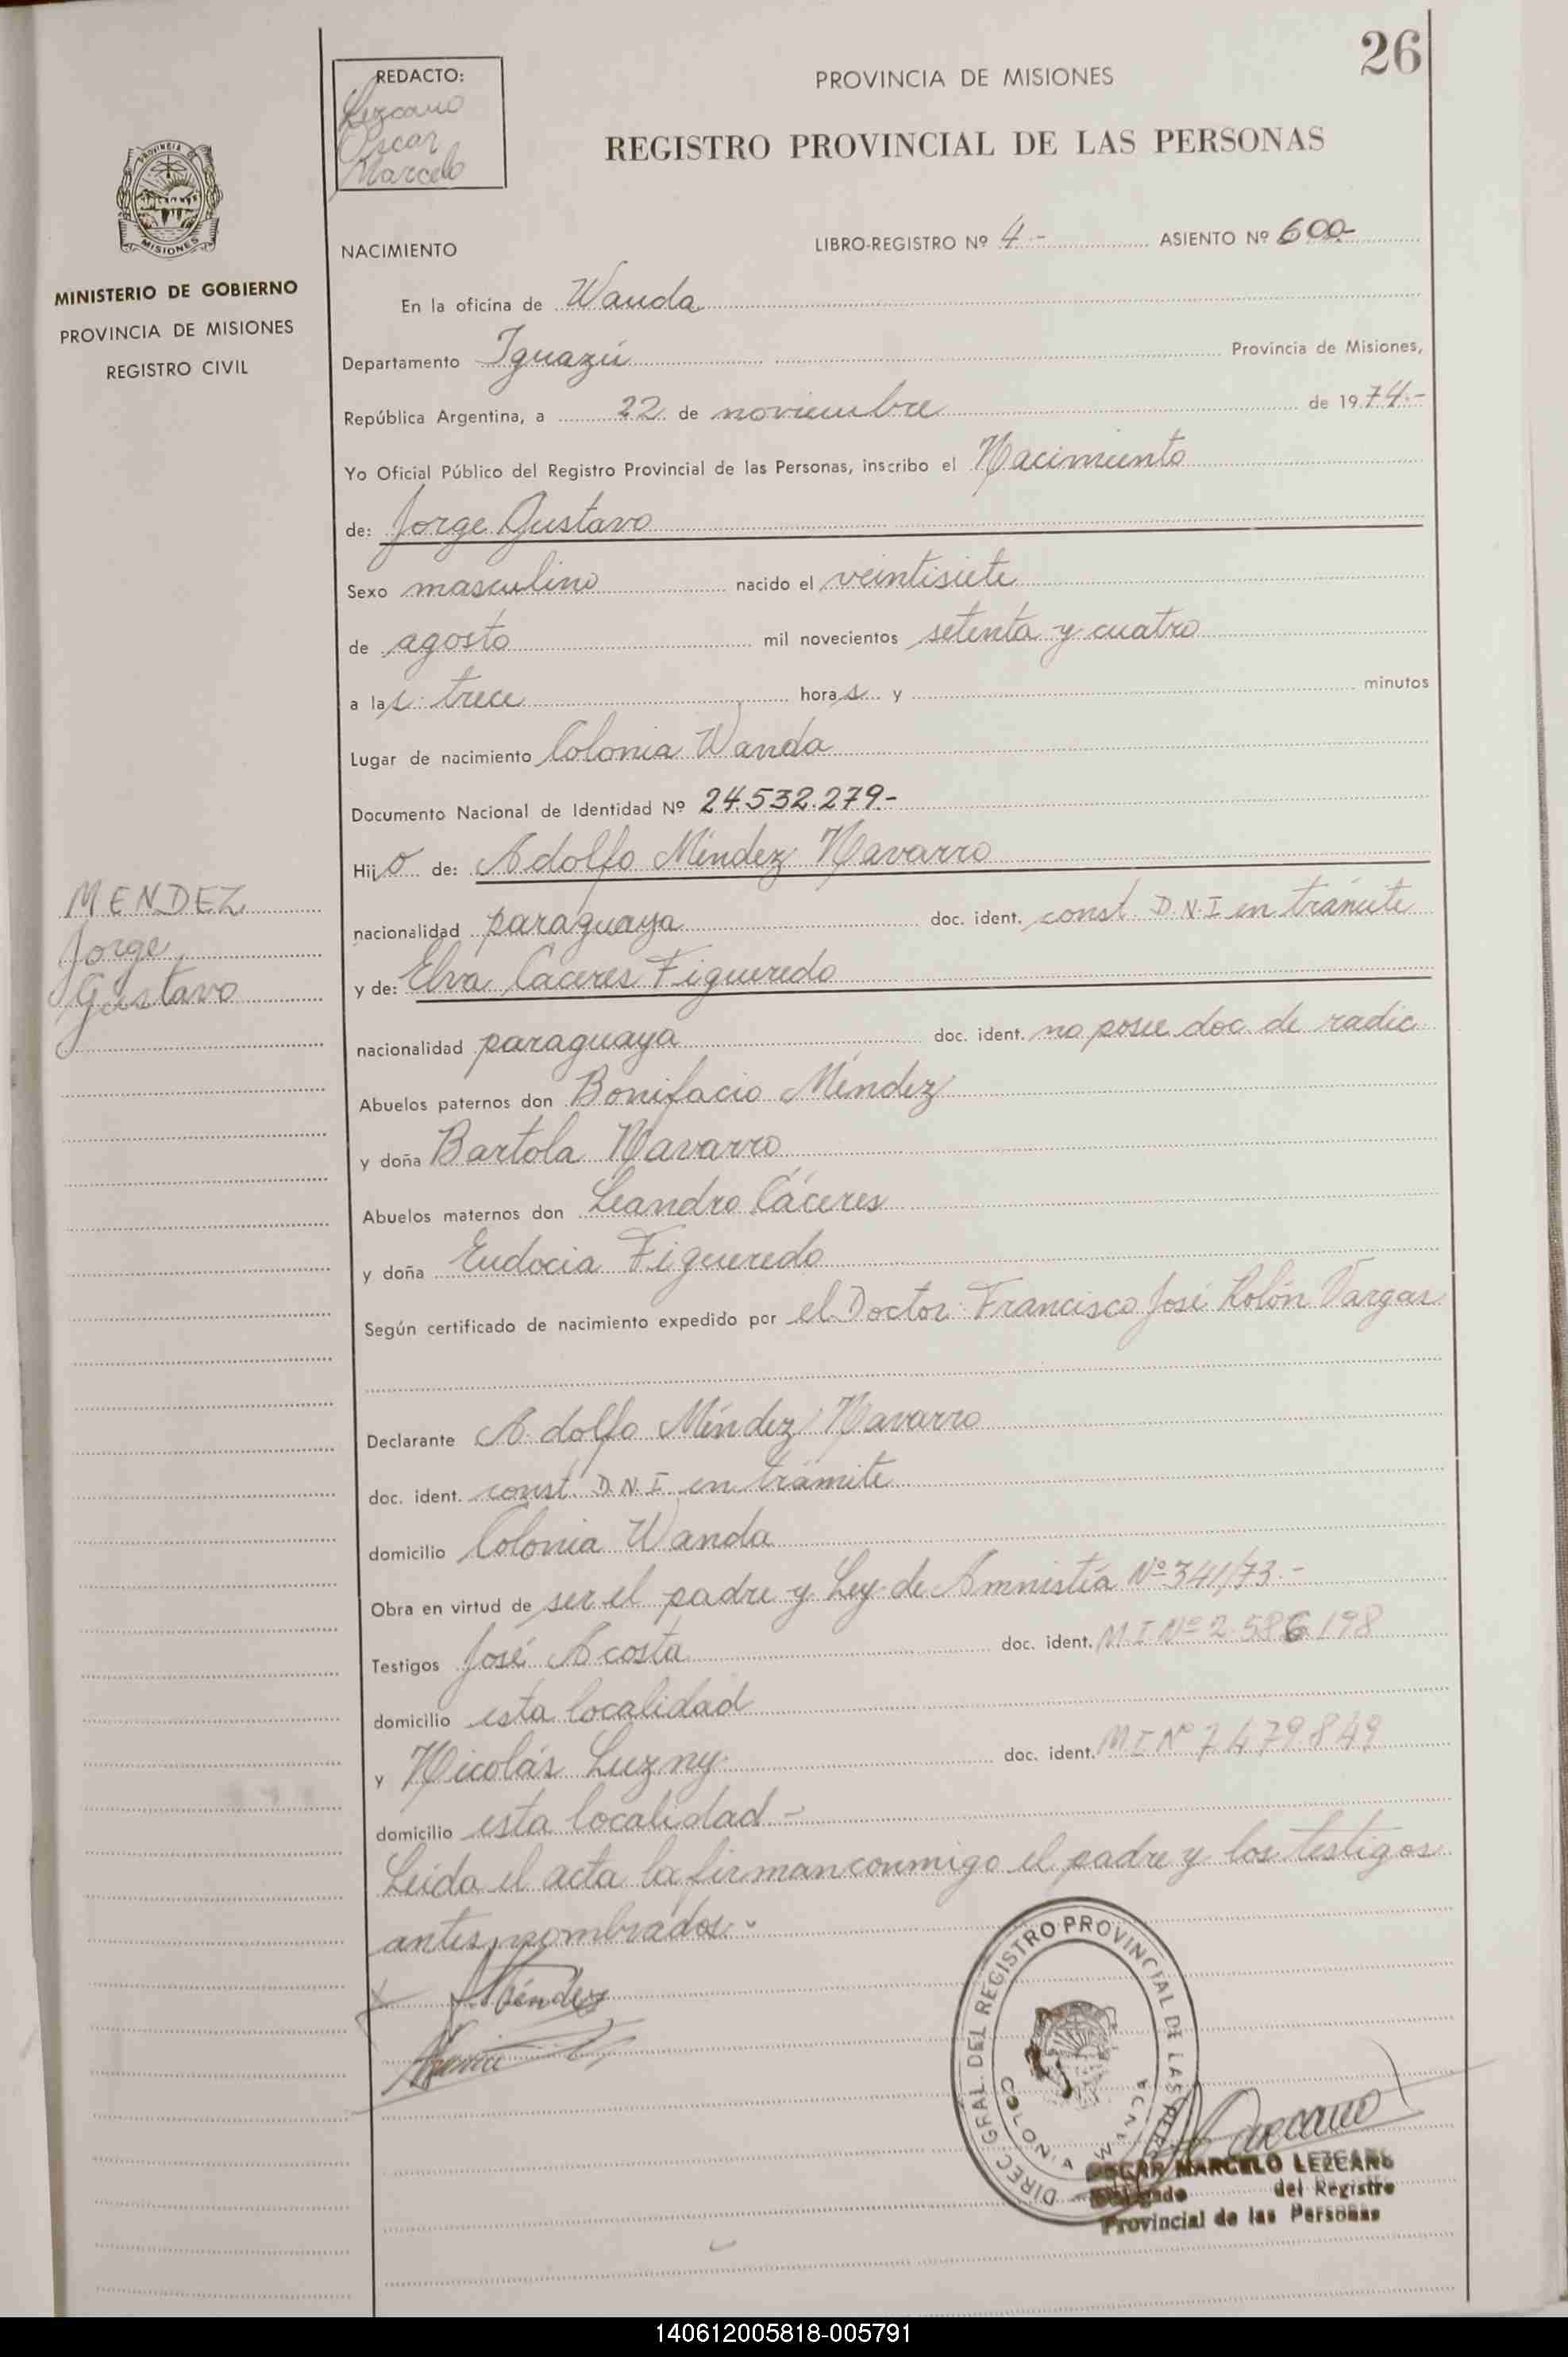 26
REDACTO:
Lezcano
Oscar
Marcelo
PROVINCIA DE MISIONES
REGISTRO PROVINCIAL DE LAS PERSONAS
PROVINCIA
MISIONES
MINISTERIO DE GOBIERNO
PROVINCIA DE MISIONES
REGISTRO CIVIL
NACIMIENTO
LIBRO-REGISTRO Nº 4.- ASIENTO Nº 600-
En la oficina de Wanda
Departamento Iguazú Provincia de Misiones,
República Argentina, a 22 de noviembre de 1974.-
Yo Oficial Público del Registro Provincial de las Personas, inscribo el Nacimiento
de: Jorge Gustavo
Sexo masculino nacido el veintisiete
de agosto mil novecientos setenta y cuatro
a las trece horas y minutos
Lugar de nacimiento Colonia Wanda
Documento Nacional de Identidad Nº 24.532.279-
Hijo de: Adolfo Méndez Navarro
nacionalidad paraguaya doc. ident. const. D.N.I en trámite
y de: Elva Cáceres Figueredo
nacionalidad paraguaya doc. ident. no posee doc. de radic.
MENDEZ
Jorge
Gustavo
Abuelos paternos don Bonifacio Méndez
y doña Bartola Navarro
Abuelos maternos don Leandro Cáceres
y doña Eudocia Figueredo
Según certificado de nacimiento expedido por el Doctor Francisco José Rolón Vargas
Declarante Adolfo Méndez Navarro
doc. ident. const. D.N.I en trámite
domicilio Colonia Wanda
Obra en virtud de ser el padre y Ley de Amnistía Nº 341/73.-
Testigos José Acosta doc. ident. M.I Nº 2.586.198
domicilio esta localidad
y Nicolás Luzny doc. ident. M.I Nº 7.479.849
domicilio esta localidad-
Leída el acta la firman conmigo el padre y los testigos
antes nombrados.-
Méndez
DIREC. GRAL. DEL REGISTRO PROVINCIAL DE LAS PER
COLONIA WANDA
Lezcano
OSCAR MARCELO LEZCANO
Delegado del Registro
Provincial de las Personas
140612005818-005791